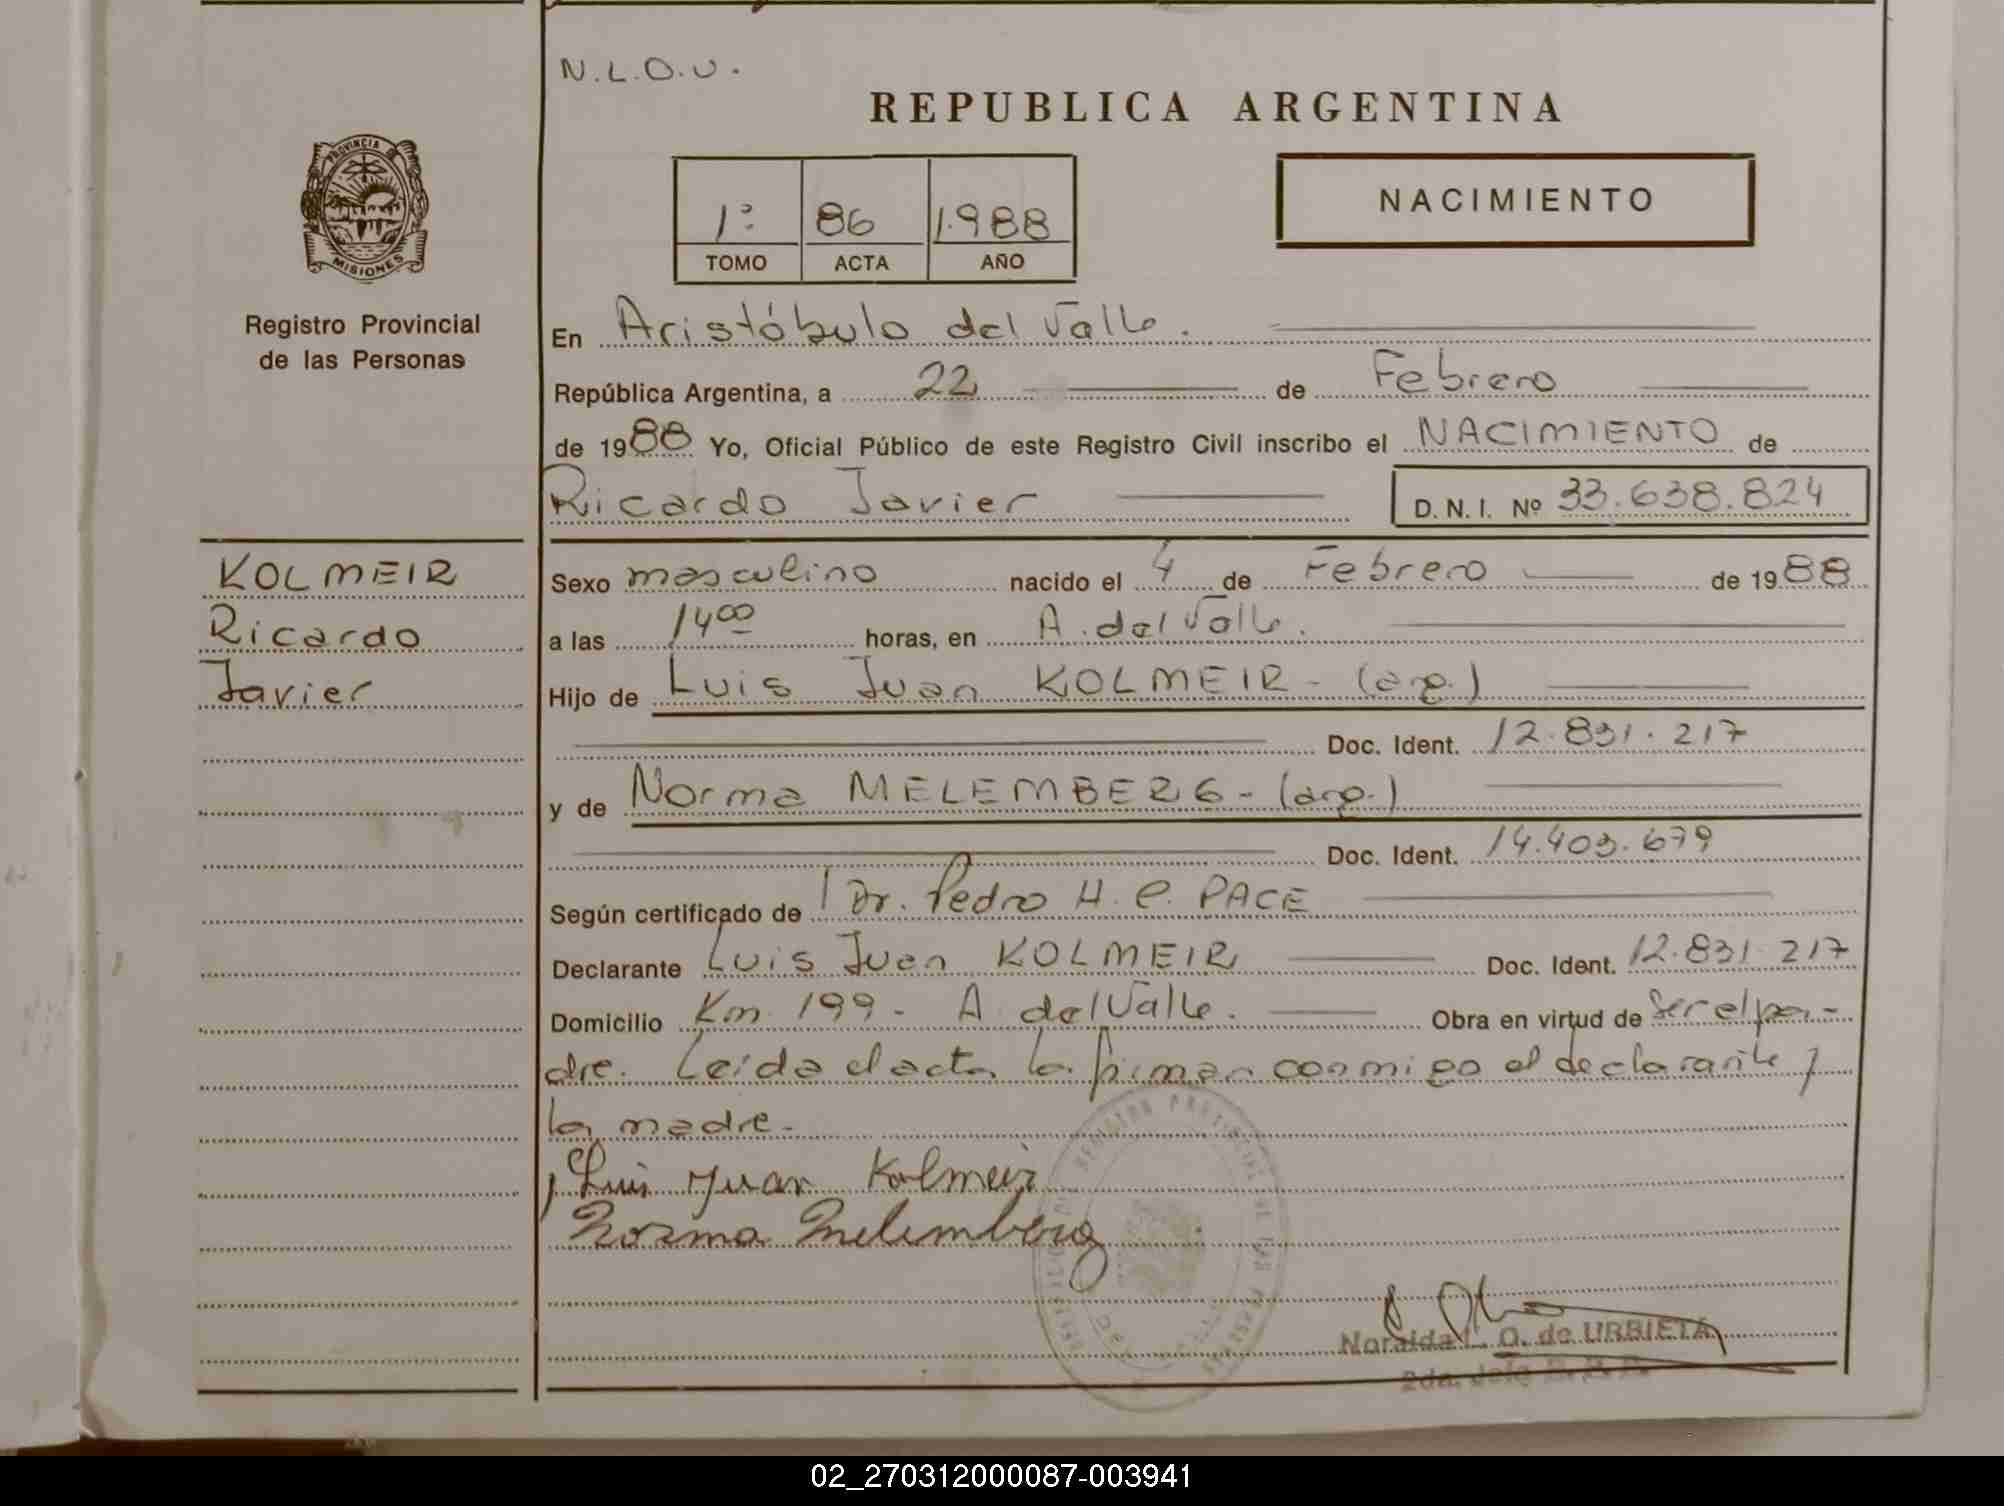 N.L.O.U.
REPUBLICA ARGENTINA
PROVINCIA DE
MISIONES
Registro Provincial
de las Personas
1º 86 1.988
TOMO ACTA AÑO
NACIMIENTO
En Aristóbulo del Valle.
República Argentina, a 22 de Febrero
de 1988 Yo, Oficial Público de este Registro Civil inscribo el NACIMIENTO de
Ricardo Javier D. N. I. Nº 33.638.824
KOLMEIR
Ricardo
Javier
Sexo masculino nacido el 4 de Febrero de 1988
a las 14 00 horas, en A. del Valle.
Hijo de Luis Juan KOLMEIR - (arg.)
Doc. Ident. 12.831.217
y de Norma MELEMBERG - (arg.)
Doc. Ident. 14.403.679
Según certificado de Dr. Pedro H. C. PACE
Declarante Luis Juan KOLMEIR Doc. Ident. 12.831.217
Domicilio Km. 199 - A. del Valle. Obra en virtud de ser el pa-
dre. Leída el acta la firman conmigo el declarante y
la madre.
Luis Juan Kolmeir
Norma Melemberg
Noraida L. O. de URBIETA
2da. Jefe
02_270312000087-003941